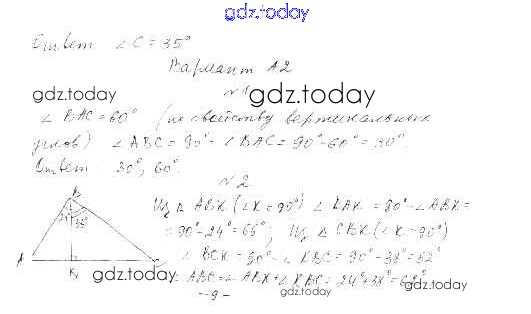 gdz.today
Ответ ∠C = 35°
Вариант А2
№1
gdz.today gdz.today
∠BAC = 60° (по свойству вертикальных
углов) ∠ABC = 90° - ∠BAC = 90° - 60° = 30°.
Ответ 30°, 60°.
№2
Из △ ABK (∠K = 90°) ∠BAK = 90° - ∠ABK =
= 90° - 24° = 66°; Из △ CBK (∠K = 90°)
∠BCK = 90° - ∠KBC = 90° - 38° = 52°
∠ABC = ∠ABK + ∠KBC = 24° + 38° = 62°
B
24° 38°
A K
gdz.today gdz.today gdz.today
-9-